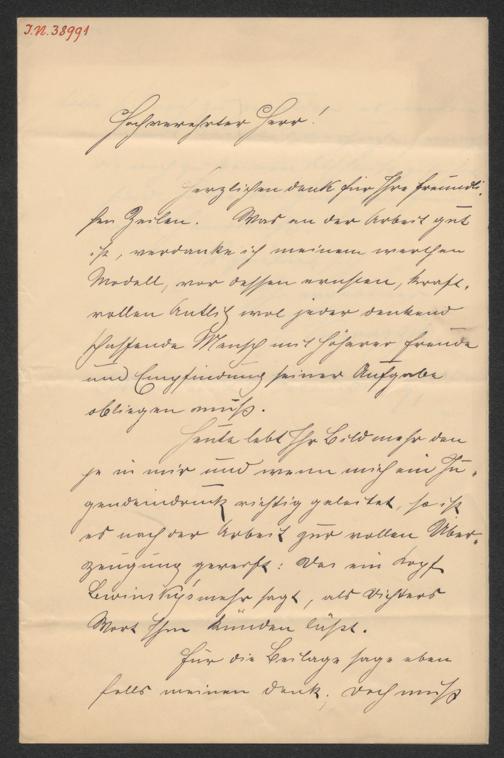 J.N. 38991
Hochverehrter Herr!
Herzlichen dank für Ihre freundli,
chen Zeilen. Was an der Arbeit gut
ist, verdanke ich meinem werthen
Modell, vor dessen ernsten, kraft,
vollen Antlitz wol jeder denkend
schaffende Mensch mit höherer Freude
und Empfindung seiner Aufgabe
obliegen muß.
Heute lebt Ihr Bild mehr den
je in mir und wenn mich ein Ju,
gendeindruck richtig geleitet, so ist
es nach der Arbeit zur vollen Über,
zeugung gereift: Das ein Kopf
Lewinsky's mehr sagt, als Dichters
Wort Ihn künden läßt.
Für die Beilage sage eben
falls meinen dank, doch muß